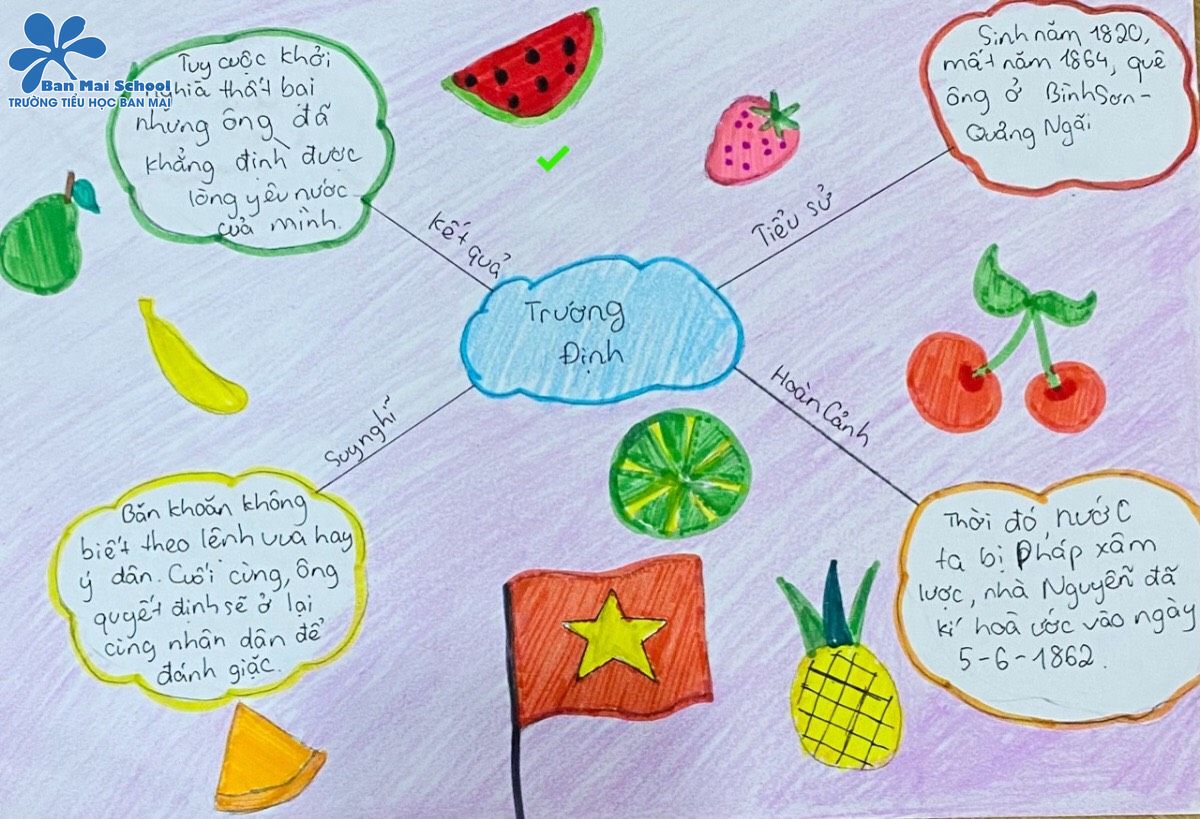 Ban Mai School
TRƯỜNG TIỂU HỌC BAN MAI
Tuy cuộc khởi
nghĩa thất bại
nhưng ông đã
khẳng định được
lòng yêu nước
của mình.
kết quả
Sinh năm 1820,
mất năm 1864, quê
ông ở Bình Sơn-
Quảng Ngãi
Tiểu sử
Trương
Định
Suy nghĩ
Băn khoăn không
biết theo lệnh vua hay
ý dân. Cuối cùng, ông
quyết định sẽ ở lại
cùng nhân dân để
đánh giặc.
Hoàn Cảnh
Thời đó nước
ta bị Pháp xâm
lược, nhà Nguyễn đã
kí hoà ước vào ngày
5-6-1862.